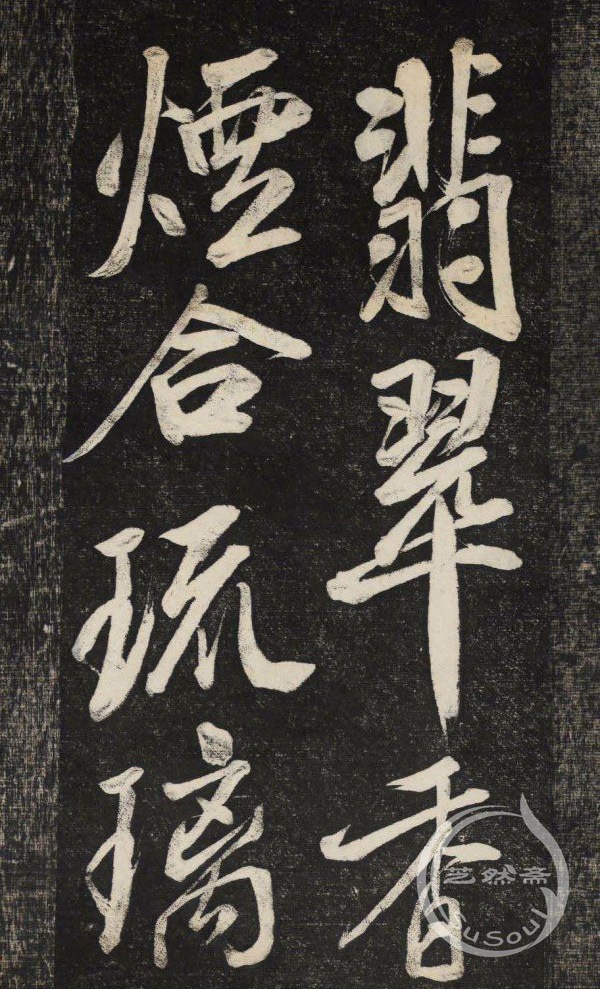 翡翠香
煙合琉璃
芝然斋
SuSoul